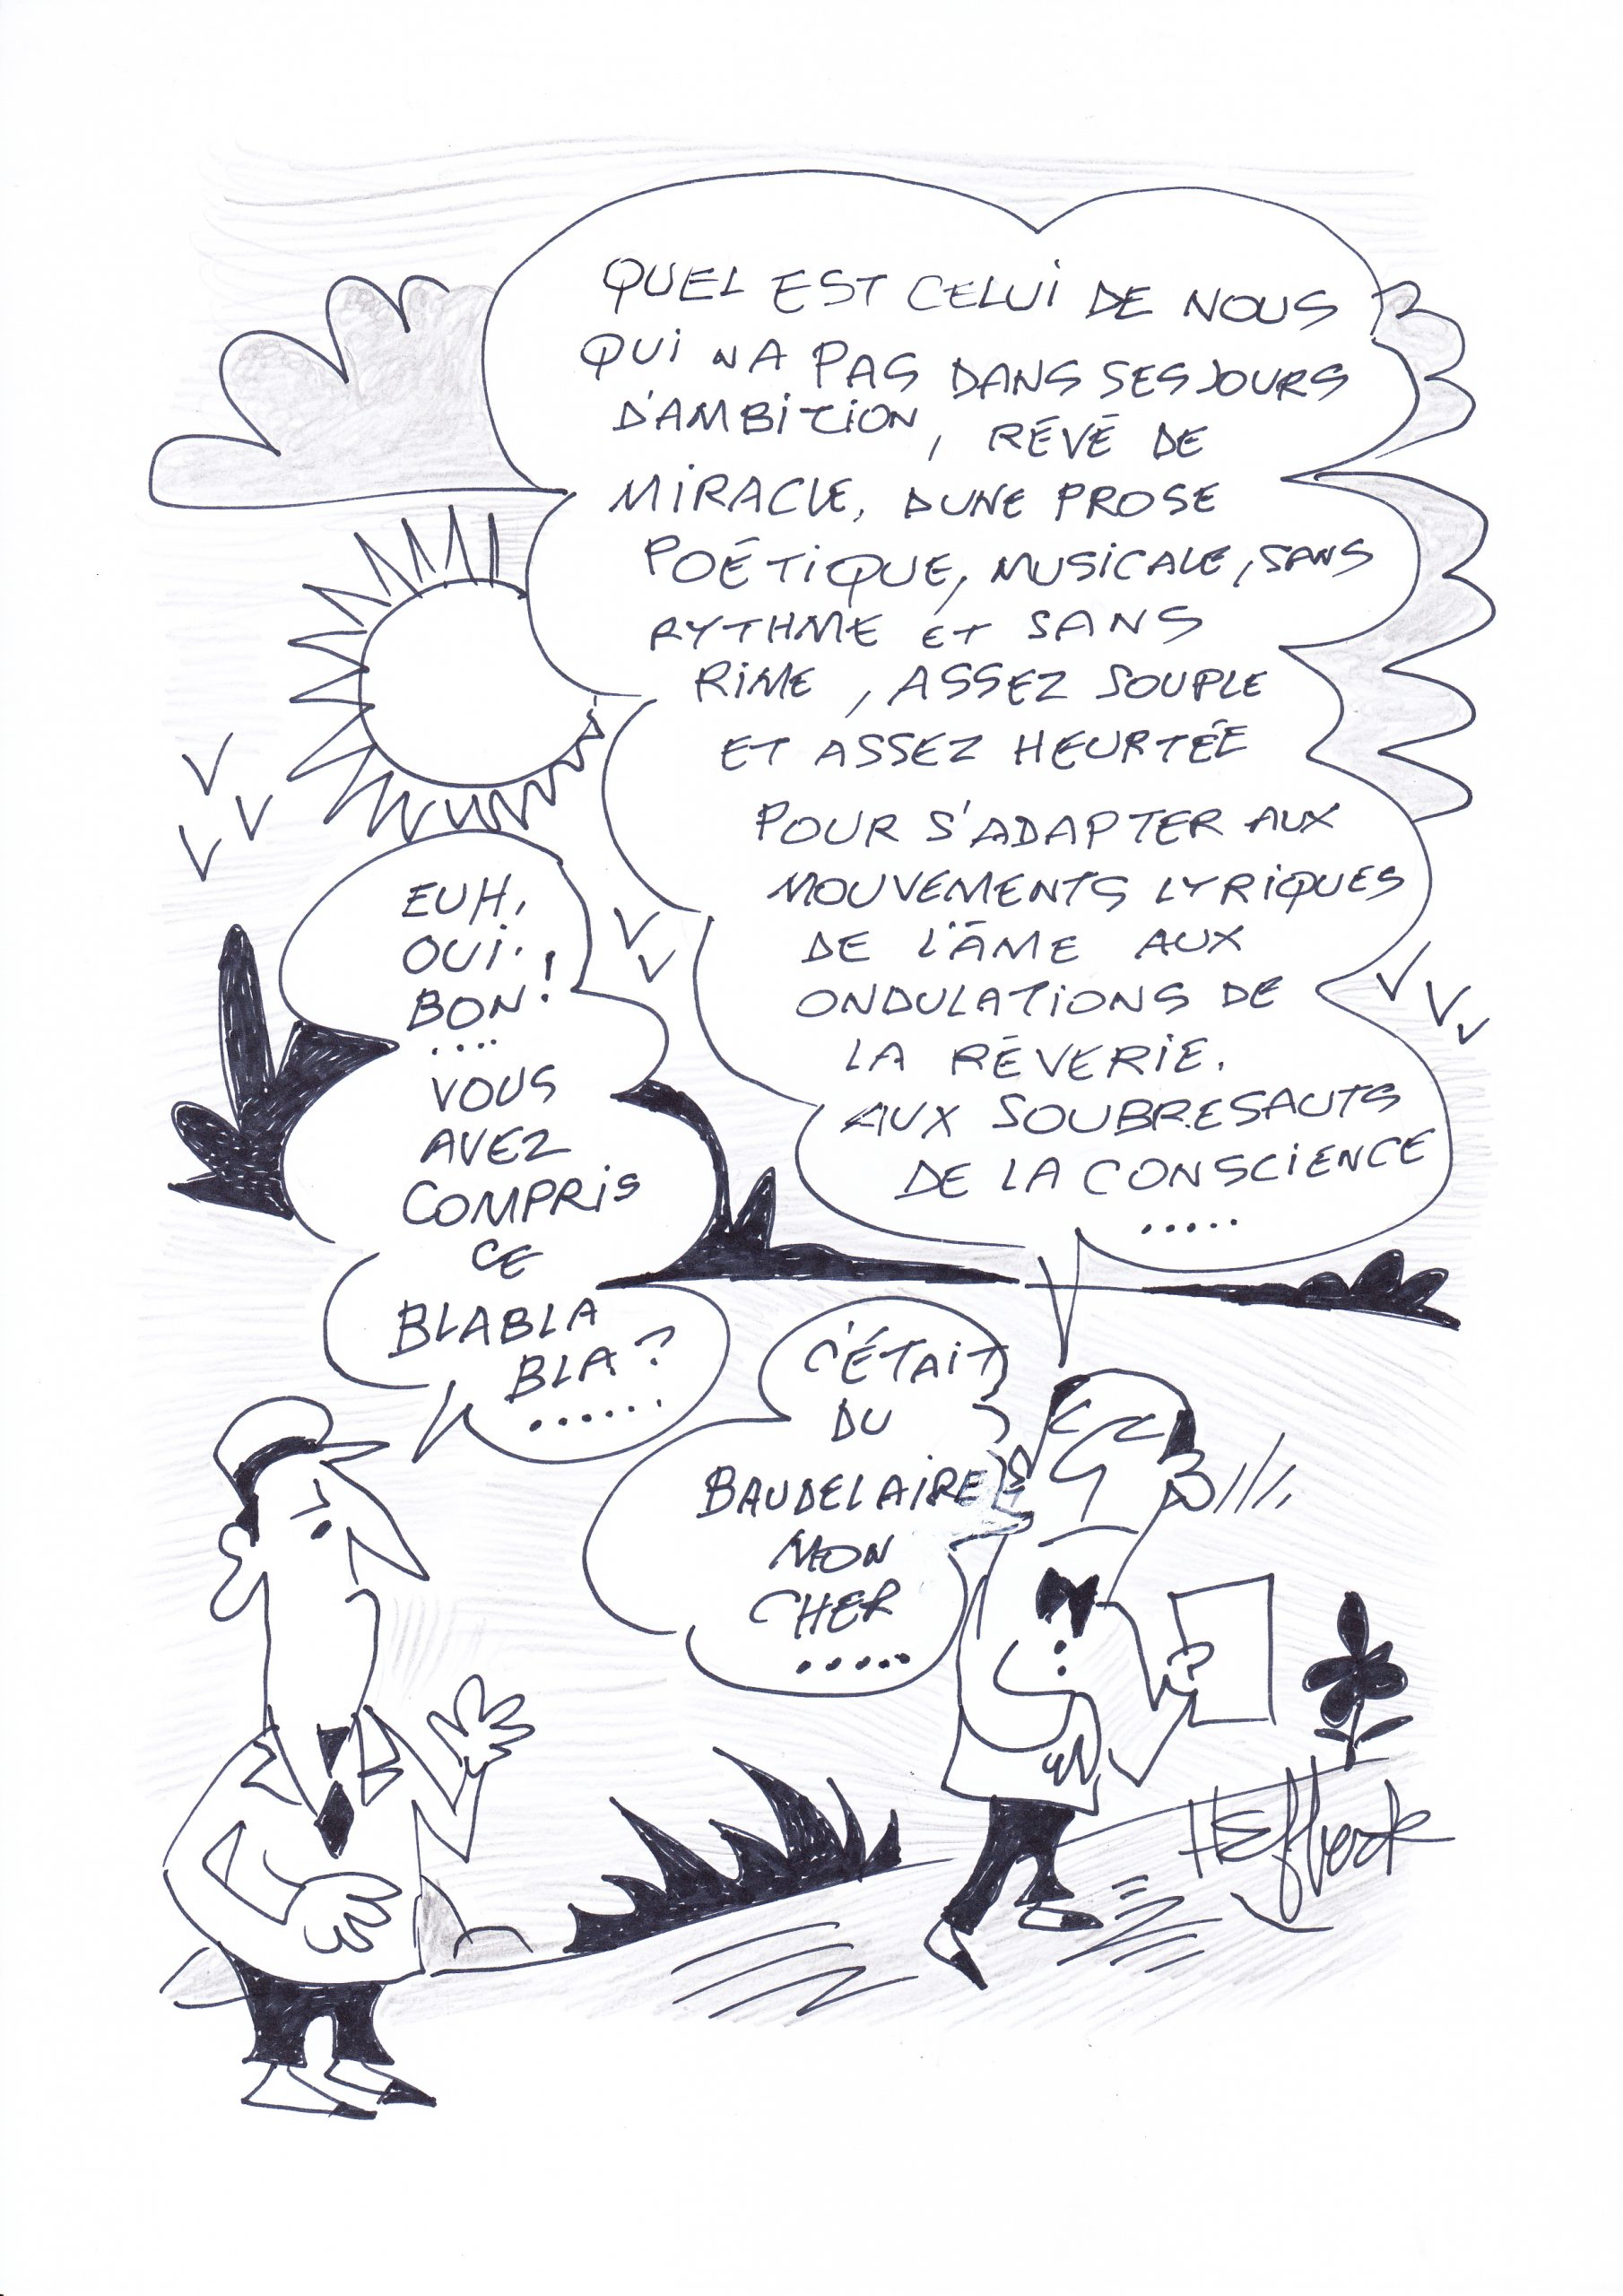 QUEL EST CELUI DE NOUS
QUI NA PAS DANS SES JOURS
D'AMBITION, RÊVÉ DE
MIRACLE, DUNE PROSE
POÉTIQUE, MUSICALE, SANS
RYTHME ET SANS
RIME, ASSEZ SOUPLE
ET ASSEZ HEURTÉE
POUR S'ADAPTER AUX
MOUVEMENTS LYRIQUES
DE L'ÂME AUX
ONDULATIONS DE
LA RÊVERIE.
AUX SOUBRESAUTS
DE LA CONSCIENCE
.....
EUH,
OUI.
BON!
....
VOUS
AVEZ
COMPRIS
CE
BLABLA
BLA?
......
C'ÉTAIT
DU
BAUDELAIRE
MON
CHER
.....